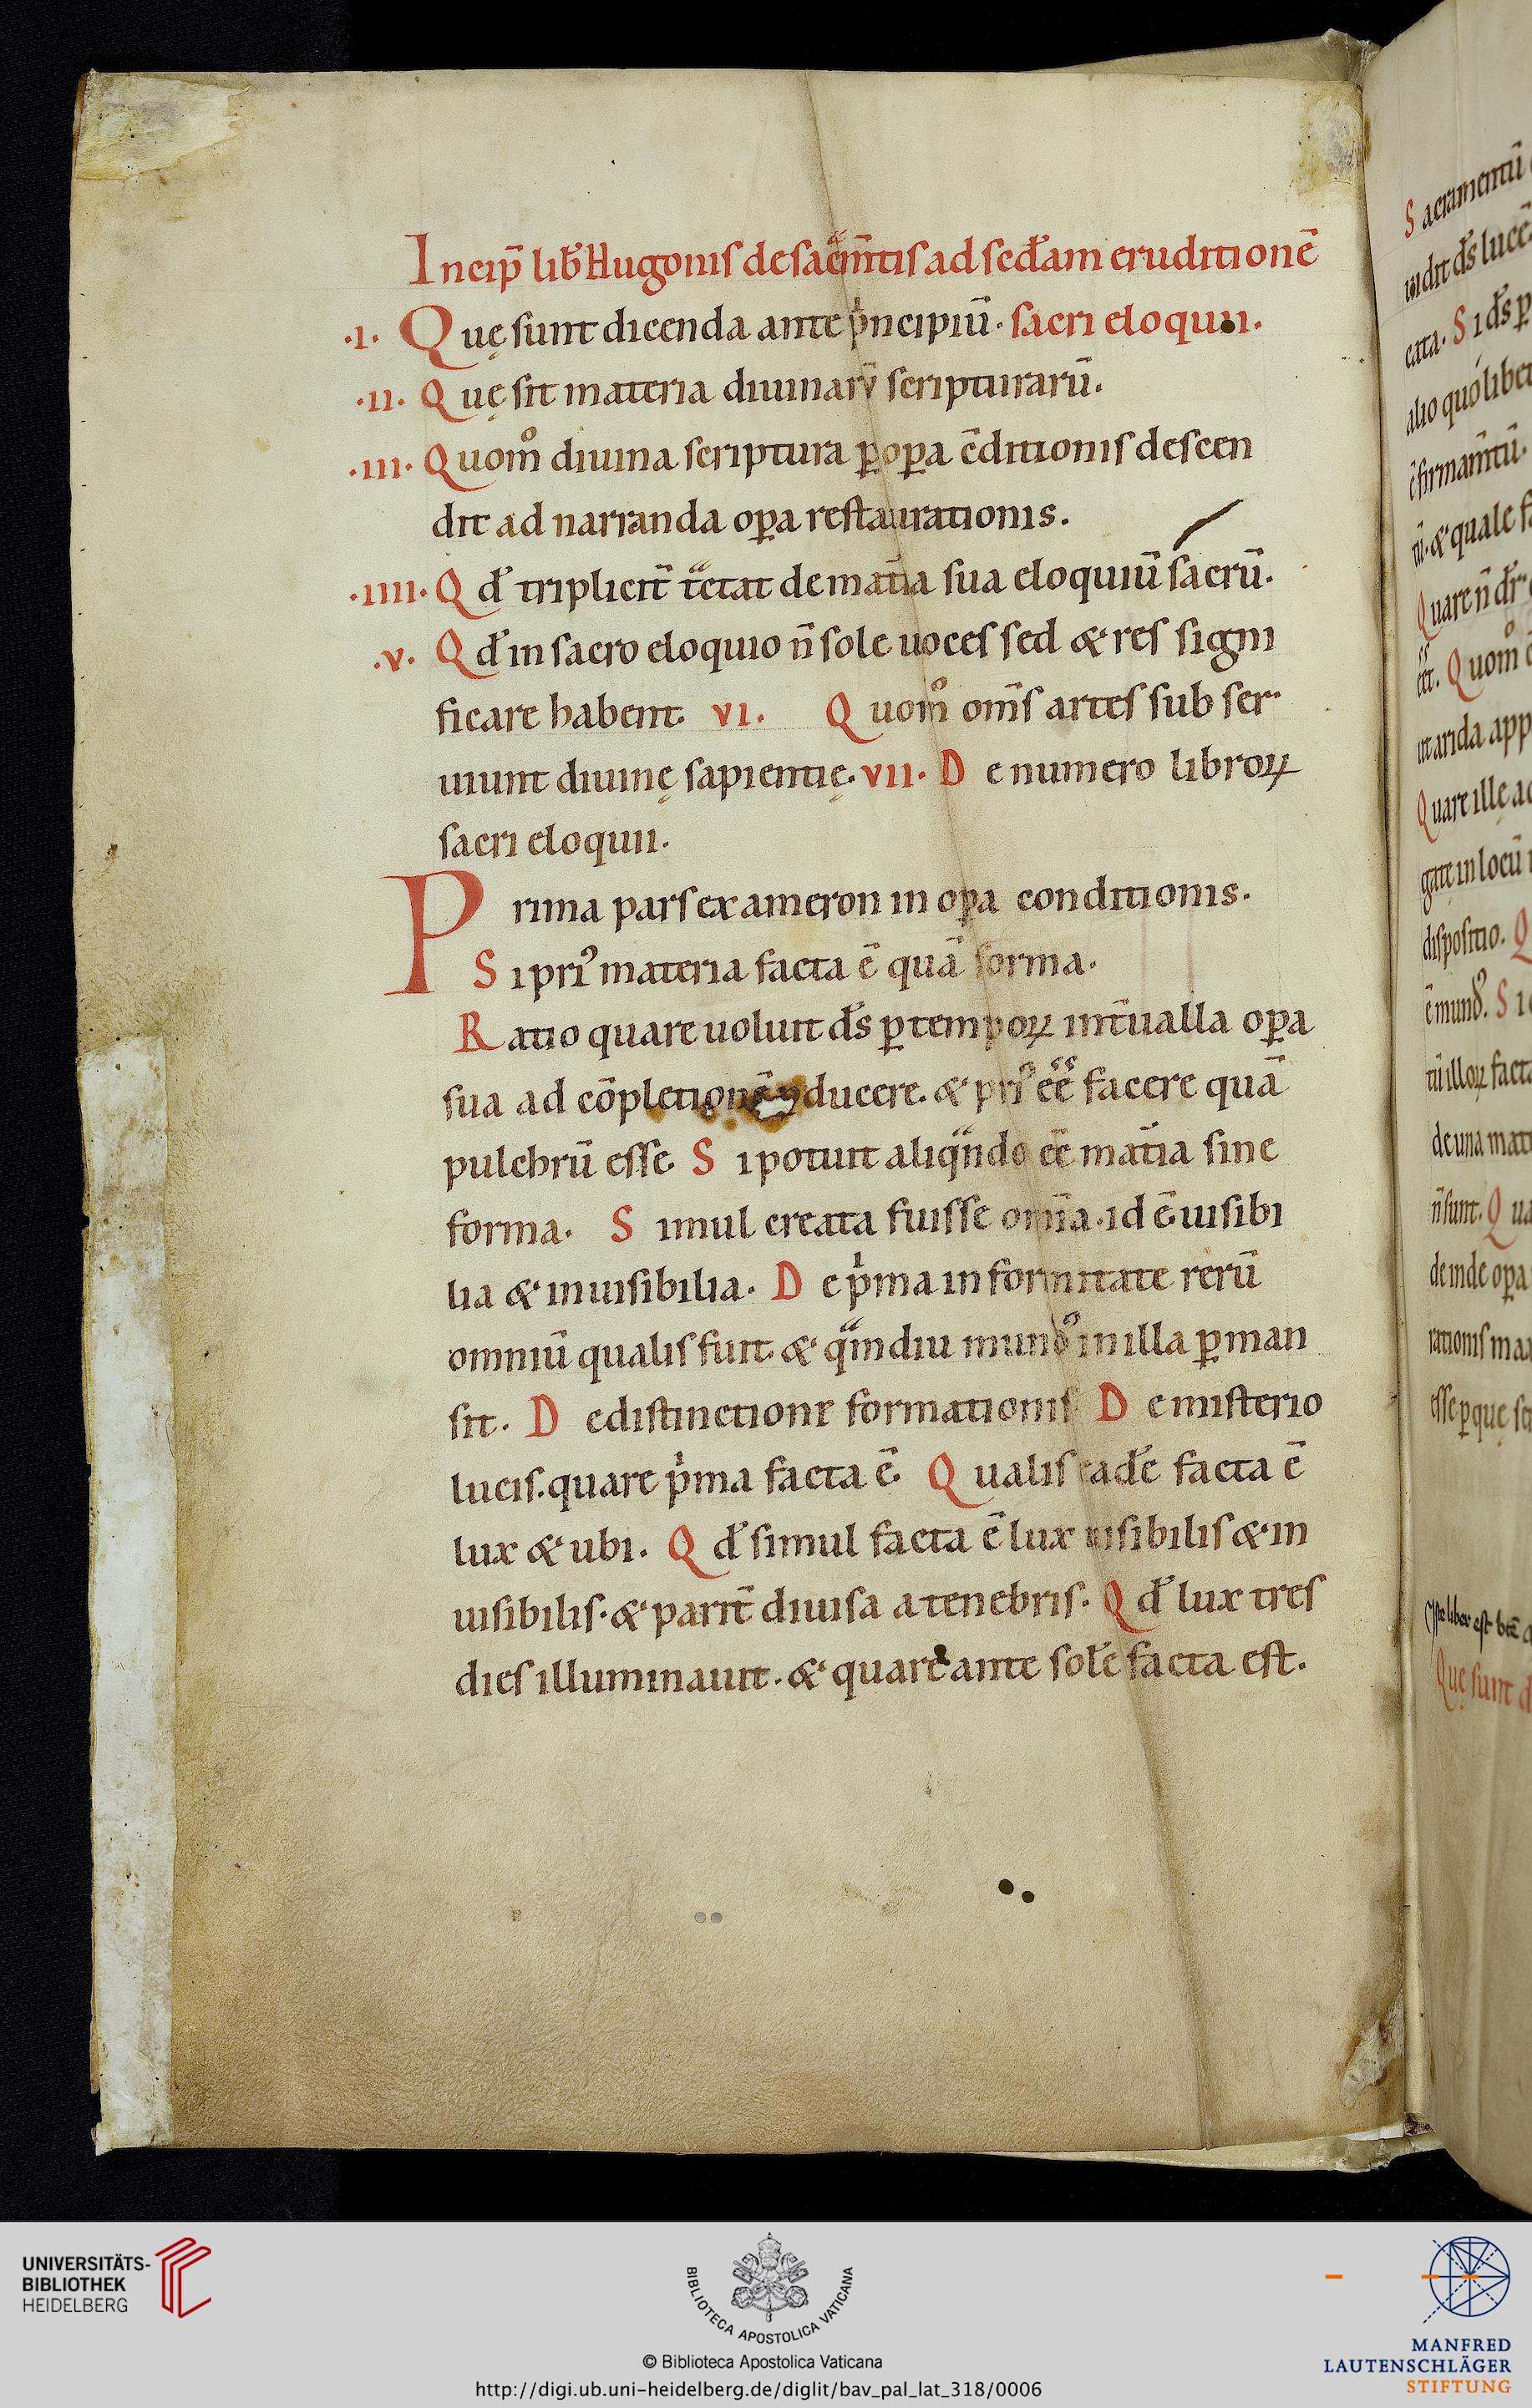 Incip̄ lib̄ Hugonis de sac̄mtis ad sed̄am eruditionē
.I. Quę sunt dicenda ante pͥncipiū. sacri eloquii.
.II. Quę sit materia diuinarū scripturarū.
.III. Quom̊ diuina scriptura ꝑ oꝑa c̄ditionis descen
dit ad narranda oꝑa restaurationis.
.IIII. Qd̄ triplicit̄ tͣctat de mat̄ia sua eloquiū sacrū.
.V. Qd̄ in sacro eloquio n̄ sole uoces sed & res signi
ficare habent. VI. Quom̊ om̄s artes sub ser
uiunt diuinę sapientię. VII. De numero libroꝝ
sacri eloquii.
Prima pars exameron in oꝑa conditionis.
Si priꝰ materia facta ē quā forma.
Ratio quare uoluit d̄s ꝑ temporꝝ int̄ualla oꝑa
sua ad cōpletionē ducere. & priꝰ ee̅ facere quā
pulchrū esse. Si potuit aliqͣndo ee̅ mat̄ia sine
forma. Simul creata fuisse om̄ia .id ē uisibi
lia & inuisibilia. De pͥma informitate rerū
omniū qualis fuit. & qͣmdiu mundꝰ in illa ꝑman
sit. De distinctione formationis. De misterio
lucis. quare pͥma facta ē. Qualis eadē facta ē
lux & ubi. Qd̄ simul facta ē lux uisibilis & in
uisibilis. & parit̄ diuisa a tenebris. Qd̄ lux tres
dies illuminauit. & quare ante solē facta est.
Sacramentū
uidit d̄s lucē
cata. Si d̄s ꝑ
alio quolibet
ē firmam̄tū.
& quale
Quare n̄
Quom̊
ut arida app
Quare illę a
gatę in locū
dispositio. Q
ē mundꝰ. Si
illoꝝ facta
de una mat
n̄ sunt. Qua
deinde oꝑa
rationis ma
esse ꝑ quę
liber est
Quę sunt d
UNIVERSITÄTS-
BIBLIOTHEK
HEIDELBERG
BIBLIOTECA APOSTOLICA VATICANA
© Biblioteca Apostolica Vaticana
http://digi.ub.uni-heidelberg.de/diglit/bav_pal_lat_318/0006
MANFRED
LAUTENSCHLÄGER
STIFTUNG